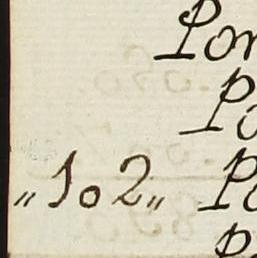 Por
Po
„102„ Po
P